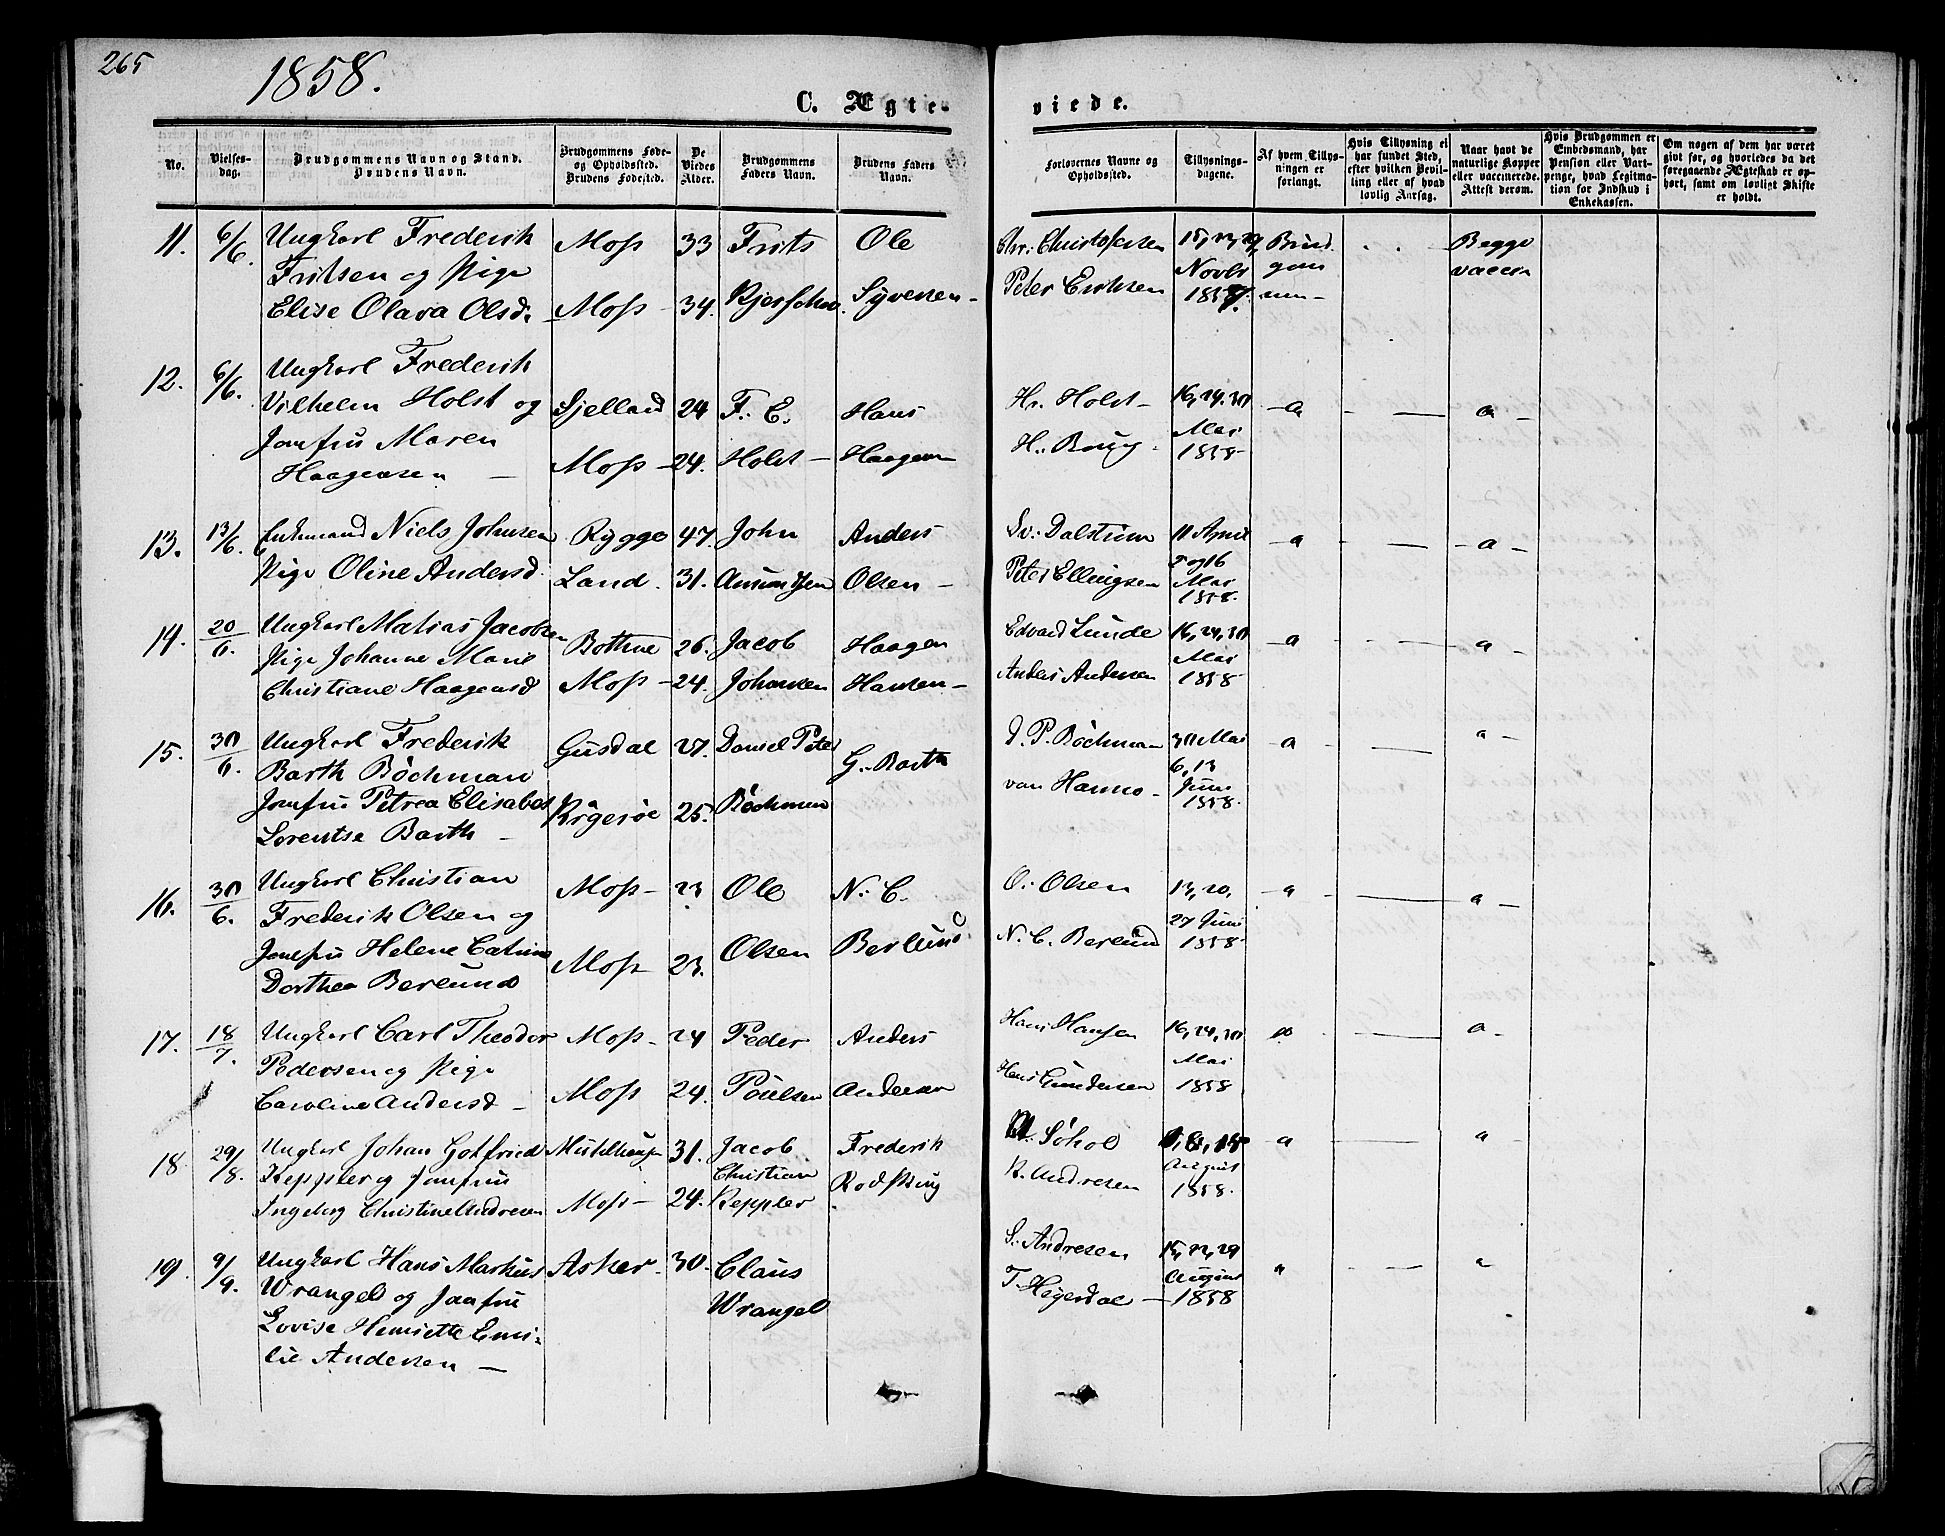 265
1858.
C. Ægte-
viede.
No.
Vielses-
dag.
Brudgommens Navn og Stand.
Brudens Navn.
Brudgommens Føde-
og Opholdssted.
Brudens Fødested.
De
Viedes
Alder.
Brudgommens
Faders Navn.
Brudens Faders
Navn.
Forlovernes Navne og
Opholdssted.
Tillysnings-
dagene.
Af hvem Tillys-
ningen er
forlangt.
Hvis Tillysning ei
har fundet Sted,
efter hvilken Bevil-
ling eller af hvad
lovlig Aarsag.
Naar havt de
naturlige Kopper
eller vaccinerede.
Attest derom.
Hvis Brudgommen er
Embedsmand, har
Pension eller Vart-
penge, hvad Legitima-
tion for Indskud i
Enkekassen.
Om nogen af dem har været
givt før, og hvorledes da det
foregaaende Ægteskab er op-
hørt, samt om lovligt Skifte
er holdt.
11. 6/6. Ungkarl Frederik Moss 33 Frits Ole Chr: Christofersen 15, 22, 29 Brud- Begge
Fritsen og Pige Peter Eriksen Novbr gom vaccin
Elise Olava Olsd. Moss 34. Syversen 1857. men
12. 6/6. Ungkarl Frederik
Vilhelm Holst og Sjelland 24 F. C. Hans H. Holst 16, 24, 30 a a
Jomfru Maren Mai
Haagensen Moss 24. Holst Haagen 1858
13. 13/6. Enkemand Niels Johnsen Rygge 47. John Anders Dalstrøm 11 April a a
Pige Oline Andersd. Land. 31. Amundsen Olsen Peter Ellingsen 2 og 16
Mai
1858.
14. 20/6. Ungkarl Matias Jacobsen Bottne 26. Jacob Haagen Edvard Lunde 16, 24, 30 a a
Pige Johanne Marie Mai
Christiane Haagensd Moss 24. Johansen Hansen Anders Andersen 1858
15. 30/6. Ungkarl Frederik Gusdal 27. Daniel Peter G. Barth D. P. Bøchman 30 Mai a a
Barth Bøchman 6, 13
Jomfru Petrea Elisabet Krgerøe 25. Bøchman van Hanno Juni
Lorentse Barth 1858.
16. 30/6. Ungkarl Christian Moss 23 Ole N. C. O. Olsen 13, 20, a a
Frederik Olsen og 27 Juni
Jomfru Helene Catrine Moss 23. Olsen Berlund N. C. Berlund 1858
Dorthea Berlund
17. 18/7. Ungkarl Carl Theodor Moss 24 Peder Anders Hans Hansen 16, 24, 30 a a
Pedersen og Pige Mai
Caroline Andersd Moss 24. Poulsen Andersen Hans Gundersen 1858
18 29/8. Ungkarl Johan Gotfried Muhlhausen 31. Jacob Frederik Søhol 1, 8, 15 a a
Keppler og Jomfru Christian Rodskrug August
Ingeborg Christine Andresen Moss 24. Keppler Andresen 1858.
19. 9/9. Ungkarl Hans Markus Asker 30. Claus S. Andresen 15, 22, 29 a a
Wrangel og Jomfru Wrangel T. Hegerdal August
Lovise Henriette Emi- 1858
lie Andersen